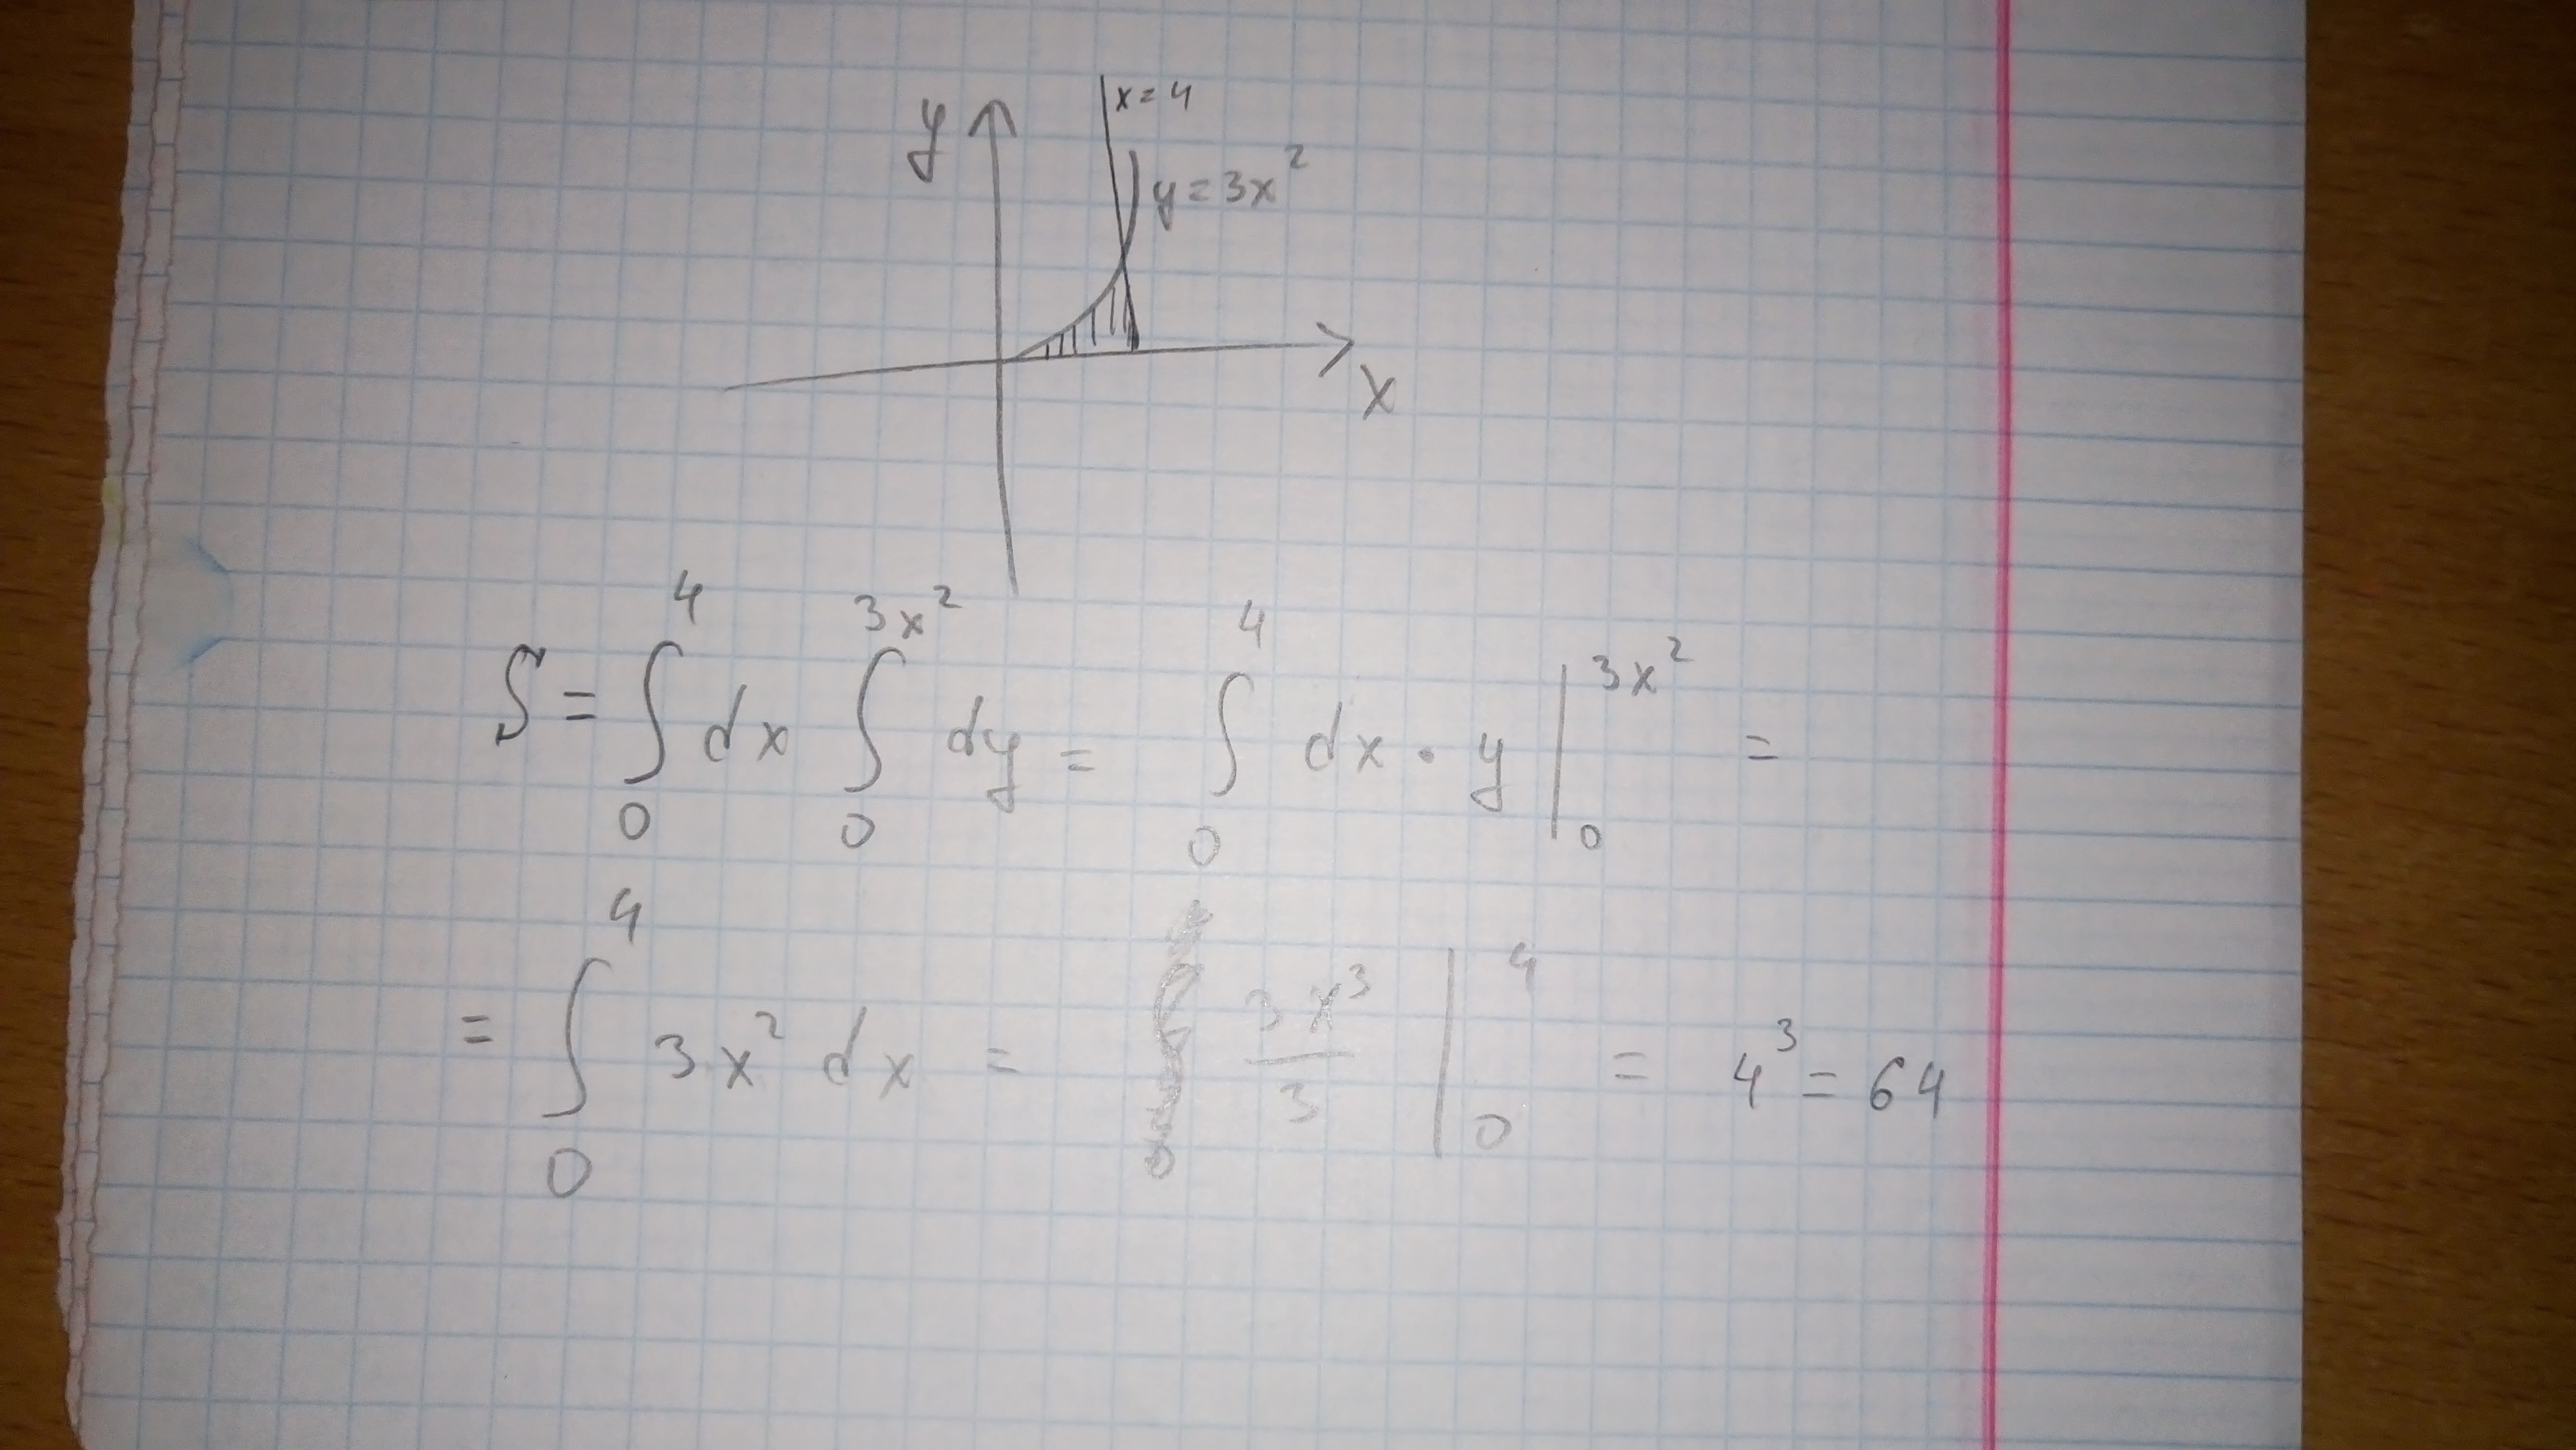 y
x = 4
y = 3x²
x
S = ∫₀⁴ dx ∫₀^(3x²) dy = ∫₀⁴ dx · y |₀^(3x²) =
= ∫₀⁴ 3x² dx = 3x³/3 |₀⁴ = 4³ = 64